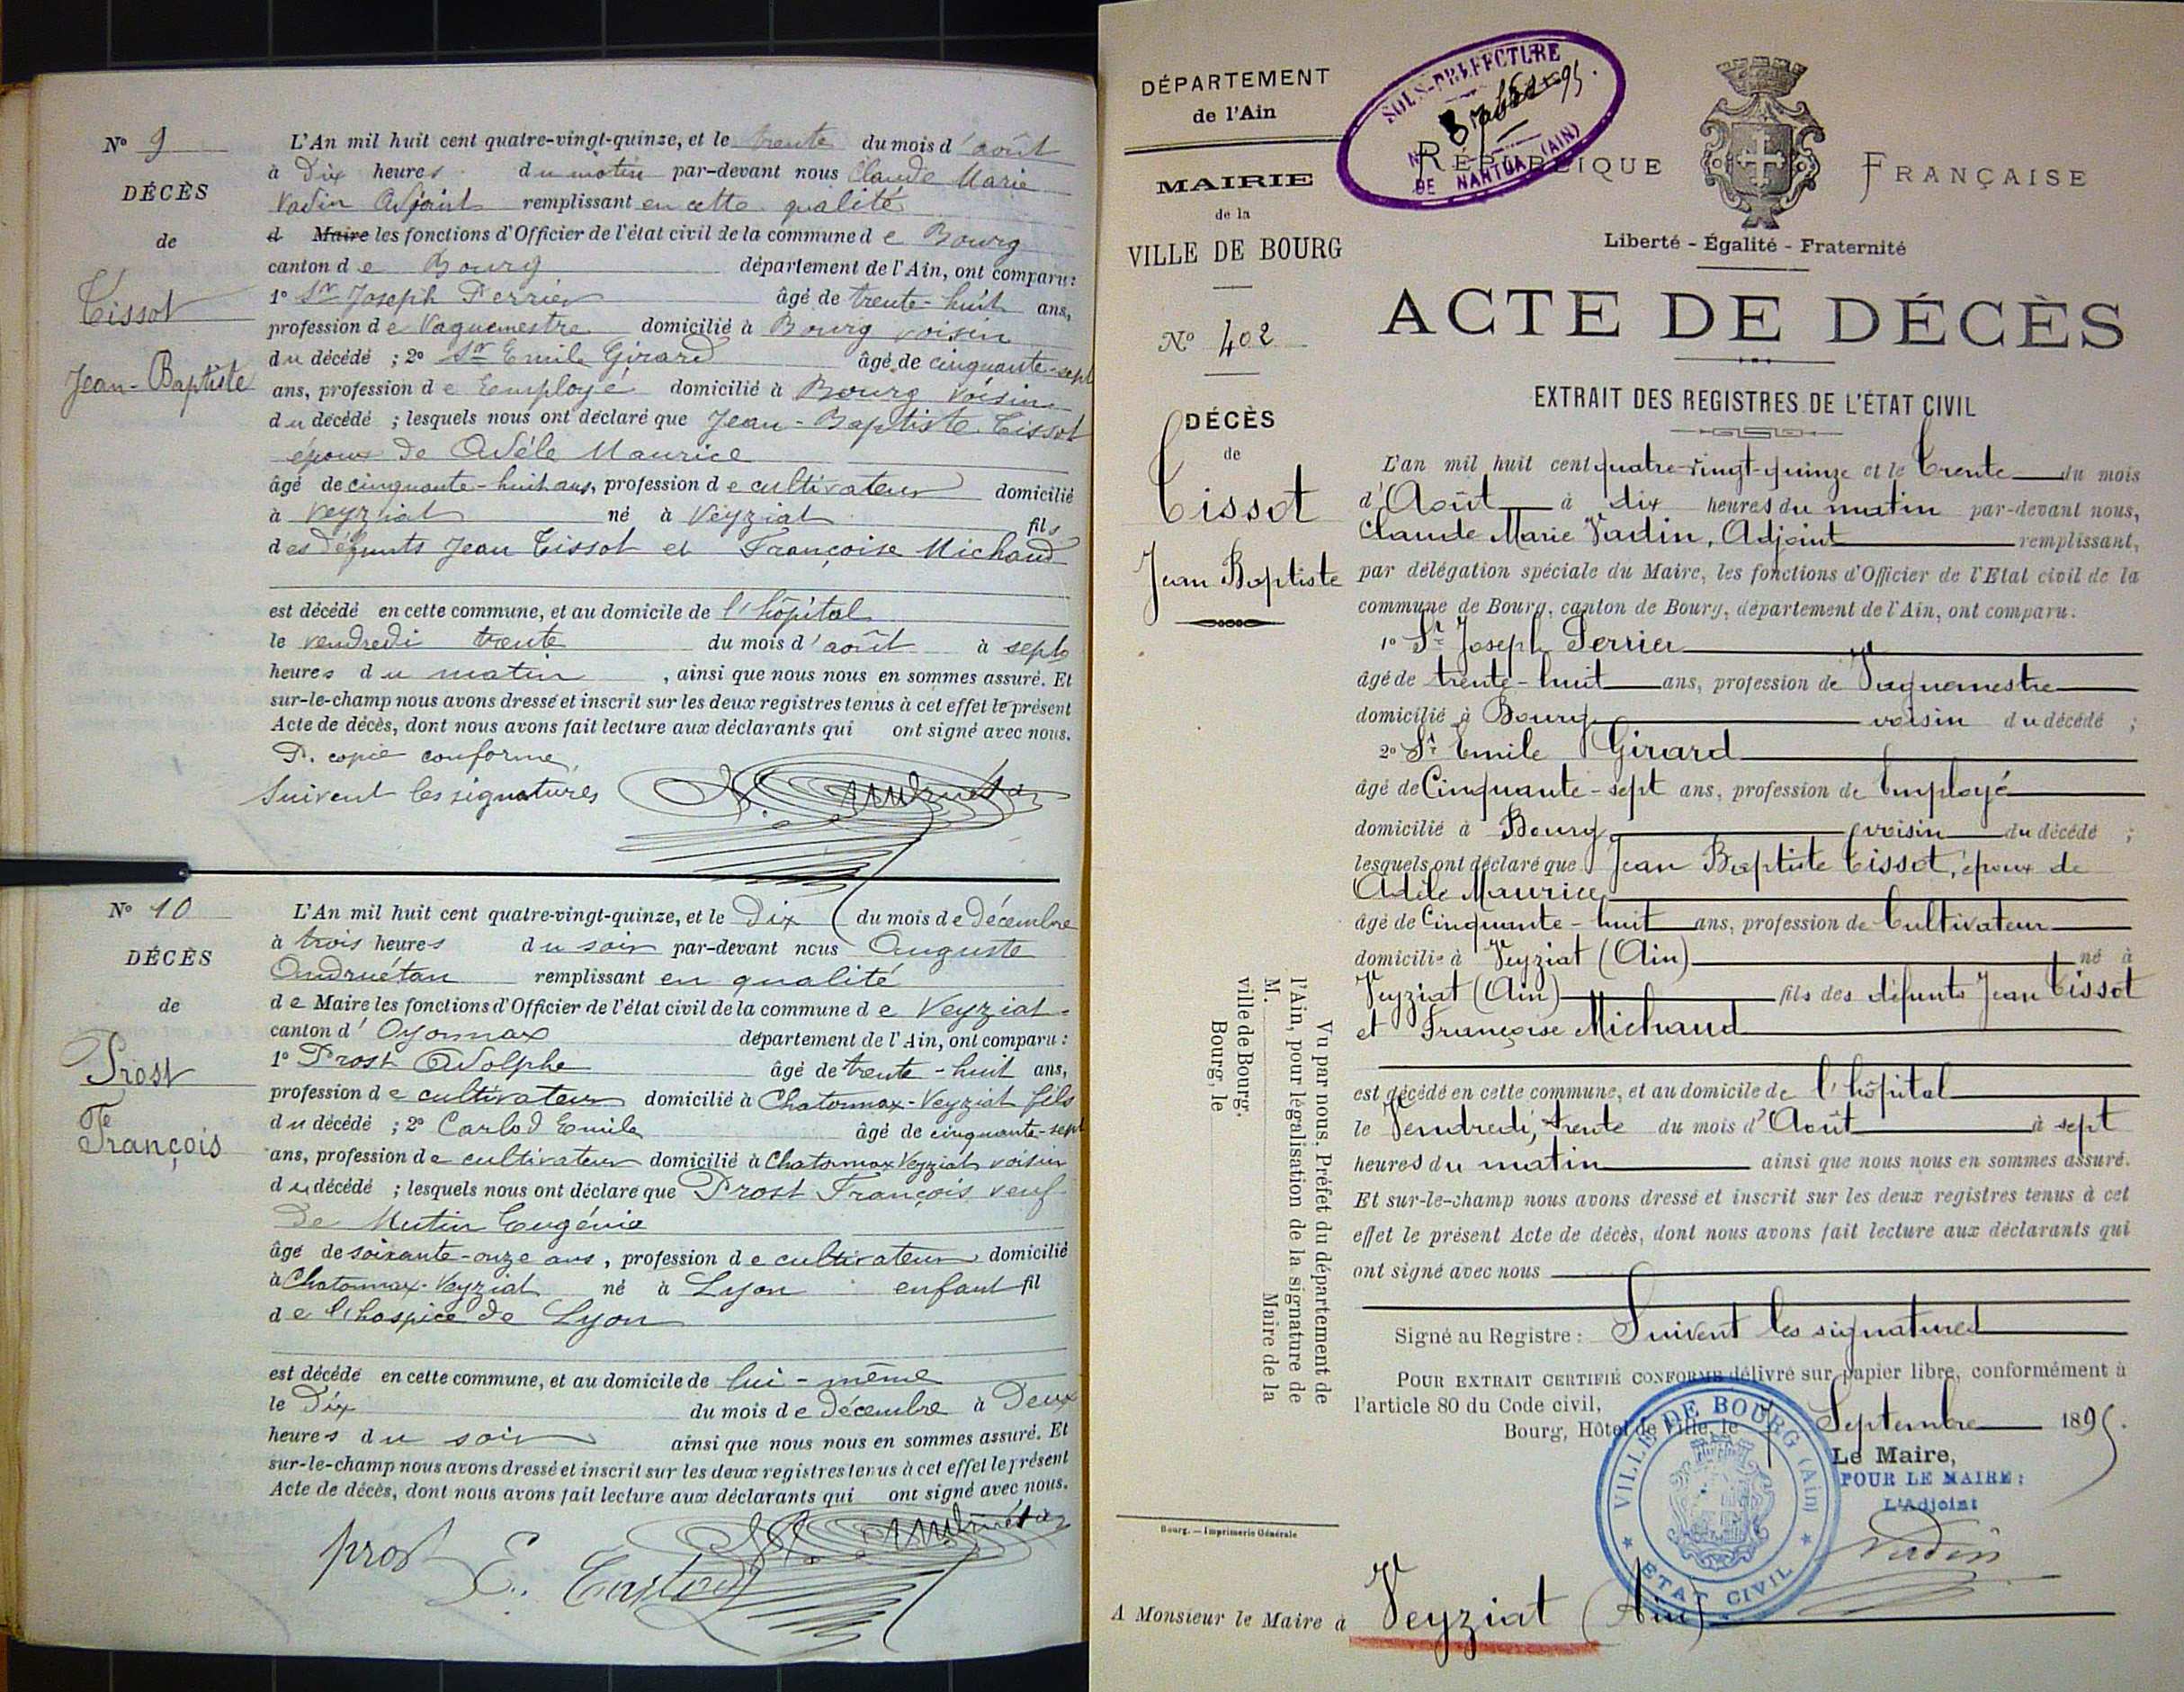 N° 9
DÉCÈS
de
Tissot
Jean-Baptiste
L'An mil huit cent quatre-vingt-quinze, et le trente du mois d'août
à Dix heures du matin par-devant nous Claude Marie
Vadin Adjoint remplissant en cette qualité
d Maire les fonctions d'Officier de l'état civil de la commune de Bourg
canton de Bourg département de l'Ain, ont comparu:
1° Sr Joseph Perrier âgé de trente-huit ans,
profession de Vaguemestre domicilié à Bourg voisin
du décédé ; 2° Sr Emile Girard âgé de cinquante-sept
ans, profession de Employé domicilié à Bourg voisin
du décédé ; lesquels nous ont déclaré que Jean-Baptiste Tissot
époux de Adèle Maurice
âgé de cinquante-huit ans, profession de cultivateur domicilié
à Veyziat né à Veyziat fils
des défunts Jean Tissot et Françoise Michaud
est décédé en cette commune, et au domicile de l'hôpital
le vendredi trente du mois d'août à sept
heures du matin , ainsi que nous nous en sommes assuré. Et
sur-le-champ nous avons dressé et inscrit sur les deux registres tenus à cet effet le présent
Acte de décès, dont nous avons fait lecture aux déclarants qui ont signé avec nous.
P. copie conforme,
Suivent les signatures
N° 10
DÉCÈS
de
Prost
François
L'An mil huit cent quatre-vingt-quinze, et le Dix du mois de Décembre
à trois heures du soir par-devant nous Auguste
Andruétan remplissant en qualité
de Maire les fonctions d'Officier de l'état civil de la commune de Veyziat
canton d'Oyonnax département de l'Ain, ont comparu :
1° Prost Adolphe âgé de trente-huit ans,
profession de cultivateur domicilié à Chatonnax-Veyziat fils
du décédé ; 2° Carlod Emile âgé de cinquante-sept
ans, profession de cultivateur domicilié à Chatonnax Veyziat voisin
du décédé ; lesquels nous ont déclaré que Prost François veuf
de Mutin Eugénie
âgé de soixante-onze ans, profession de cultivateur domicilié
à Chatonnax-Veyziat né à Lyon enfant fil
de l'hospice de Lyon
est décédé en cette commune, et au domicile de lui-même
le Dix du mois de Décembre à Deux
heures du soir ainsi que nous nous en sommes assuré. Et
sur-le-champ nous avons dressé et inscrit sur les deux registres tenus à cet effet le présent
Acte de décès, dont nous avons fait lecture aux déclarants qui ont signé avec nous.
prost E. Carlod
DÉPARTEMENT
de l'Ain
MAIRIE
de la
VILLE DE BOURG
N° 402
DÉCÈS
de
Tissot
Jean Baptiste
SOUS-PRÉFECTURE
DE NANTUA (AIN)
RÉPUBLIQUE FRANÇAISE
Liberté - Égalité - Fraternité
ACTE DE DÉCÈS
EXTRAIT DES REGISTRES DE L'ÉTAT CIVIL
L'an mil huit cent quatre-vingt-quinze et le trente du mois
d'Août à dix heures du matin par-devant nous,
Claude Marie Vadin, Adjoint remplissant,
par délégation spéciale du Maire, les fonctions d'Officier de l'Etat civil de la
commune de Bourg, canton de Bourg, département de l'Ain, ont comparu.
1° Sr Joseph Perrier
âgé de trente-huit ans, profession de Vaguemestre
domicilié à Bourg voisin du décédé ;
2° Sr Emile Girard
âgé de Cinquante-sept ans, profession de Employé
domicilié à Bourg voisin du décédé ;
lesquels ont déclaré que Jean Baptiste Tissot, époux de
Adèle Maurice
âgé de Cinquante-huit ans, profession de Cultivateur
domicilié à Veyziat (Ain) né à
Veyziat (Ain) fils des défunts Jean Tissot
et Françoise Michaud
est décédé en cette commune, et au domicile de l'hôpital
le Vendredi, trente du mois d'Août à sept
heures du matin ainsi que nous nous en sommes assuré.
Et sur-le-champ nous avons dressé et inscrit sur les deux registres tenus à cet
effet le présent Acte de décès, dont nous avons fait lecture aux déclarants qui
ont signé avec nous
Signé au Registre : Suivent les signatures
POUR EXTRAIT CERTIFIÉ CONFORME délivré sur papier libre, conformément à
l'article 80 du Code civil,
Bourg, Hôtel de Ville, le 7 Septembre 1895.
Le Maire,
POUR LE MAIRE :
L'Adjoint
Vadin
VILLE DE BOURG (Ain)
ETAT CIVIL
Vu par nous, Préfet du département de
l'Ain, pour légalisation de la signature de
M. Maire de la
ville de Bourg.
Bourg, le
Bourg. — Imprimerie Générale
A Monsieur le Maire à Veyziat (Ain)